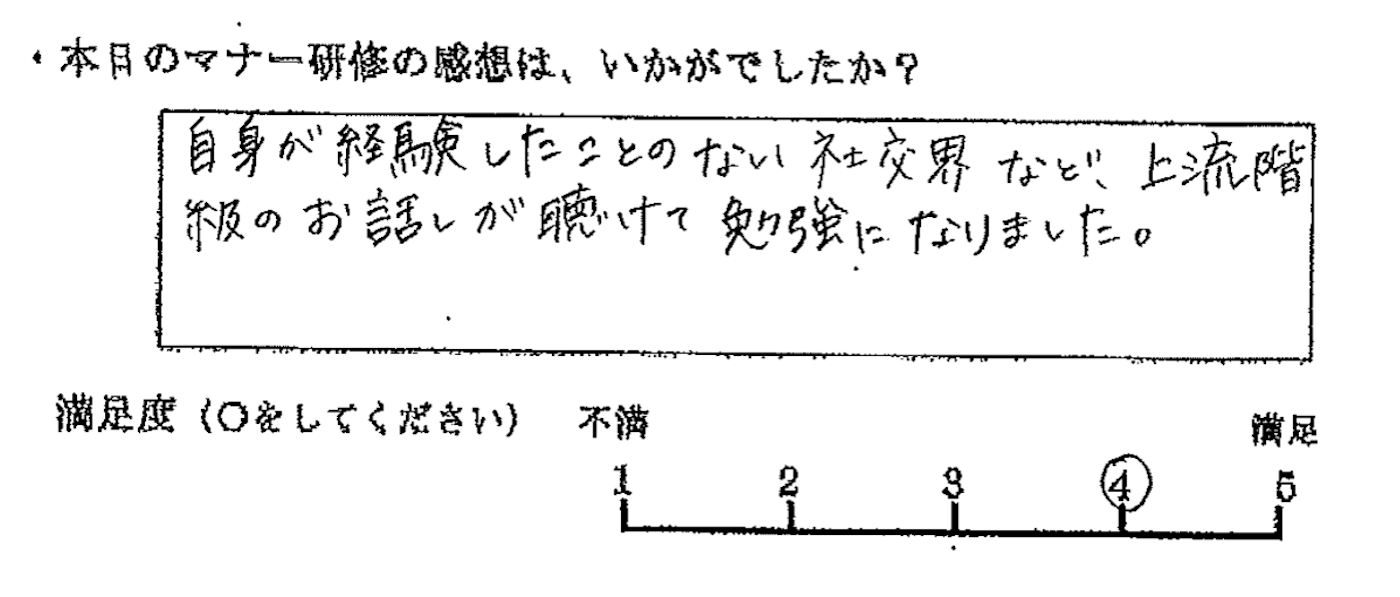 ・本日のマナー研修の感想は、いかがでしたか？
自身が経験したことのない社交界など、上流階
級のお話しが聴けて勉強になりました。
満足度（○をしてください） 不満 満足
1 2 3 4 5